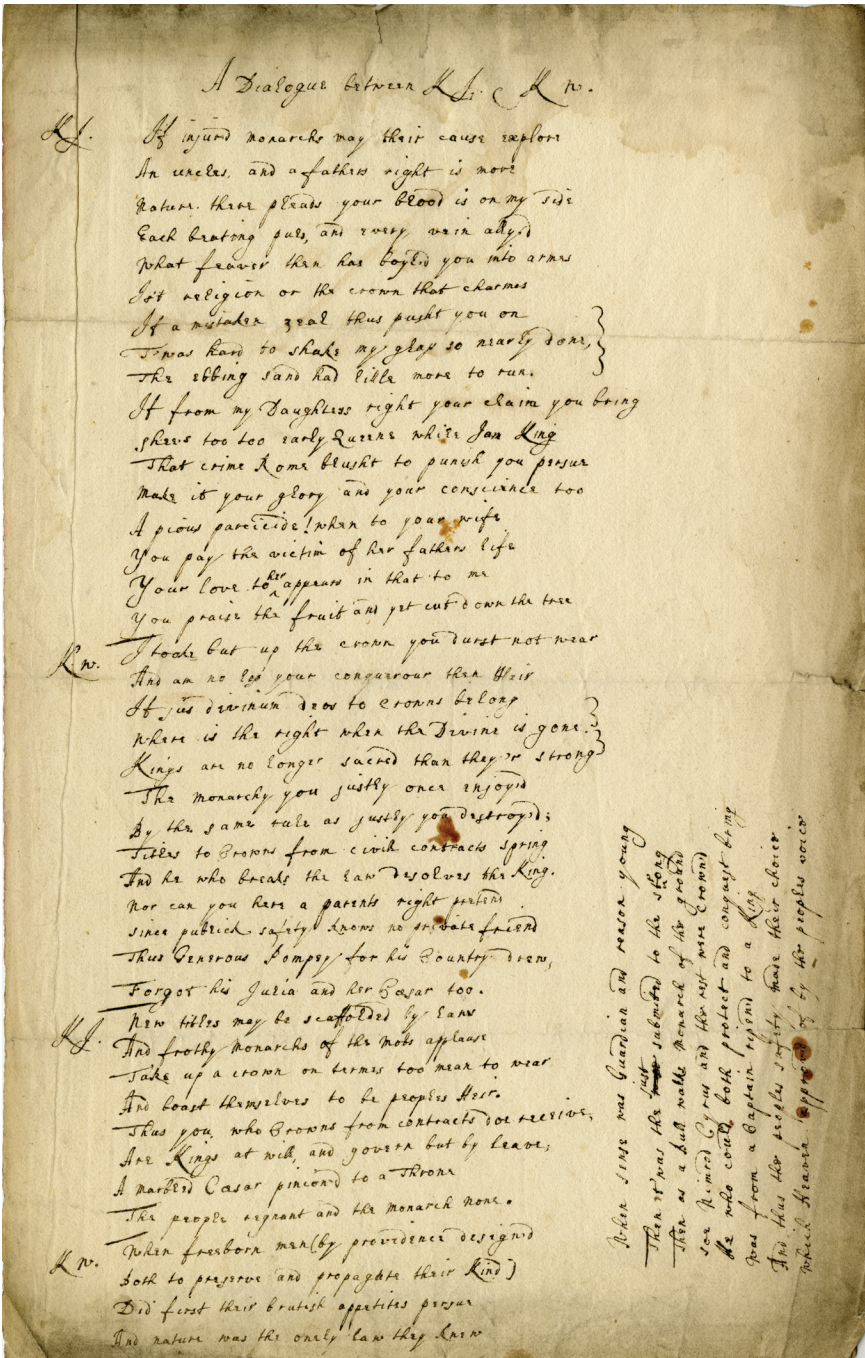 A Dialogue between K J. & K w.
K J. If injurd monarchs may their cause explore
An uncles, and a fathers right is more
Nature there pleads your blood is on my side
Each beating puls, and every vein allyd
What feaver then has boyld you into armes
Ist religion or the crown that charmes
If a mistaken zeal thus pusht you on
T'was hard to shake my glass so nearly done,
The ebbing sand had little more to run.
If from my Daughters right your claim you bring
shees too too early Queene while I am King
That crime Rome blusht to punish you persue
Make it your glory and your conscience too
A pious paricide! when to your wife
You pay the victim of her fathers life
Your love to her appears in that to me
You praise the fruit and yet cut down the tree
K w. I tooke but up the crown you durst not wear
And am no less your conquerour then Heir
If jus divinum does to Crowns belong
where is the right when the Divine is gone.
Kings are no longer sacred than they'r strong
The monarchy you justly once enjoyd
By the same rule as justly you destroyd;
Titles to Crowns from civil contracts spring
And he who breaks the law desolves the King.
Nor can you here a parents right pretend
since publick safety knows no private friend
Thus Generous Pompey for his Country drew,
Forgot his Julia and her Cæsar too.
K J. New titles may be scaffolded by laws
And frothy Monarchs of the mobs applause
Take up a crown on termes too mean to wear
And boast themselves to be peoples Heir.
Thus you, who Crowns from contracts doe receive,
Are Kings at will, and govern but by leave;
A marbled Cæsar pinion'd to a Throne
The people regnant and the monarch none.
K w. When freeborn men (by providence design'd
both to preserve and propagate their Kind)
Did first their brutish appetites persue
And nature was the onely law they knew
When sense was Guardian and reason young
Then t'was the just submited to the strong
Then as a bull walks monarch of the ground
soe Nimrod Cyrus and the rest were Crownd
he who could both protect and conquest bring
was from a Captain ripend to a King
And thus the peoples safety made their choice
which Heaven approv'd of by the peoples voice